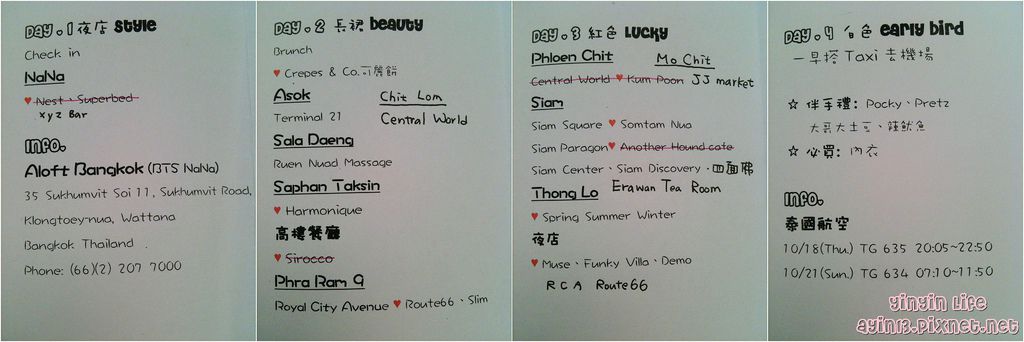 Day.1夜店 style
Check in
NaNa
♥ Nest、Superbed
xyz Bar
Info.
Aloft Bangkok (BTS NaNa)
35 Sukhumvit Soi 11, Sukhumvit Road,
Klongtoey-nua, Wattana
Bangkok Thailand .
Phone: (66)(2) 207 7000
Day.2 長裙 beauty
Brunch
♥ Crepes & Co.可麗餅
Asok
Chit Lom
Terminal 21
Central World
Sala Daeng
Ruen Nuad Massage
Saphan Taksin
♥ Harmonique
高樓餐廳
♥ Sirocco
Phra Ram 9
Royal City Avenue ♥ Route66、Slim
Day.3 紅色 Lucky
Phloen Chit
Mo Chit
Central World ♥ Kum Poon
JJ market
Siam
Siam Square ♥ Somtam Nua
Siam Paragon♥ Another Hound cafe
Siam Center、Siam Discovery、四面佛
Erawan Tea Room
Thong Lo
♥ Spring Summer Winter
夜店
♥ Muse、Funky Villa、Demo
RCA Route66
Day.4 白色 early bird
一早搭 Taxi 去機場
☆ 伴手禮: Pocky、Pretz
大哥大土司、辣魷魚
☆ 必買: 內衣
Info.
泰國航空
10/18(Thu.) TG 635 20:05~22:50
10/21(Sun.) TG 634 07:10~11:50
yinyin Life
ayin13.pixnet.net